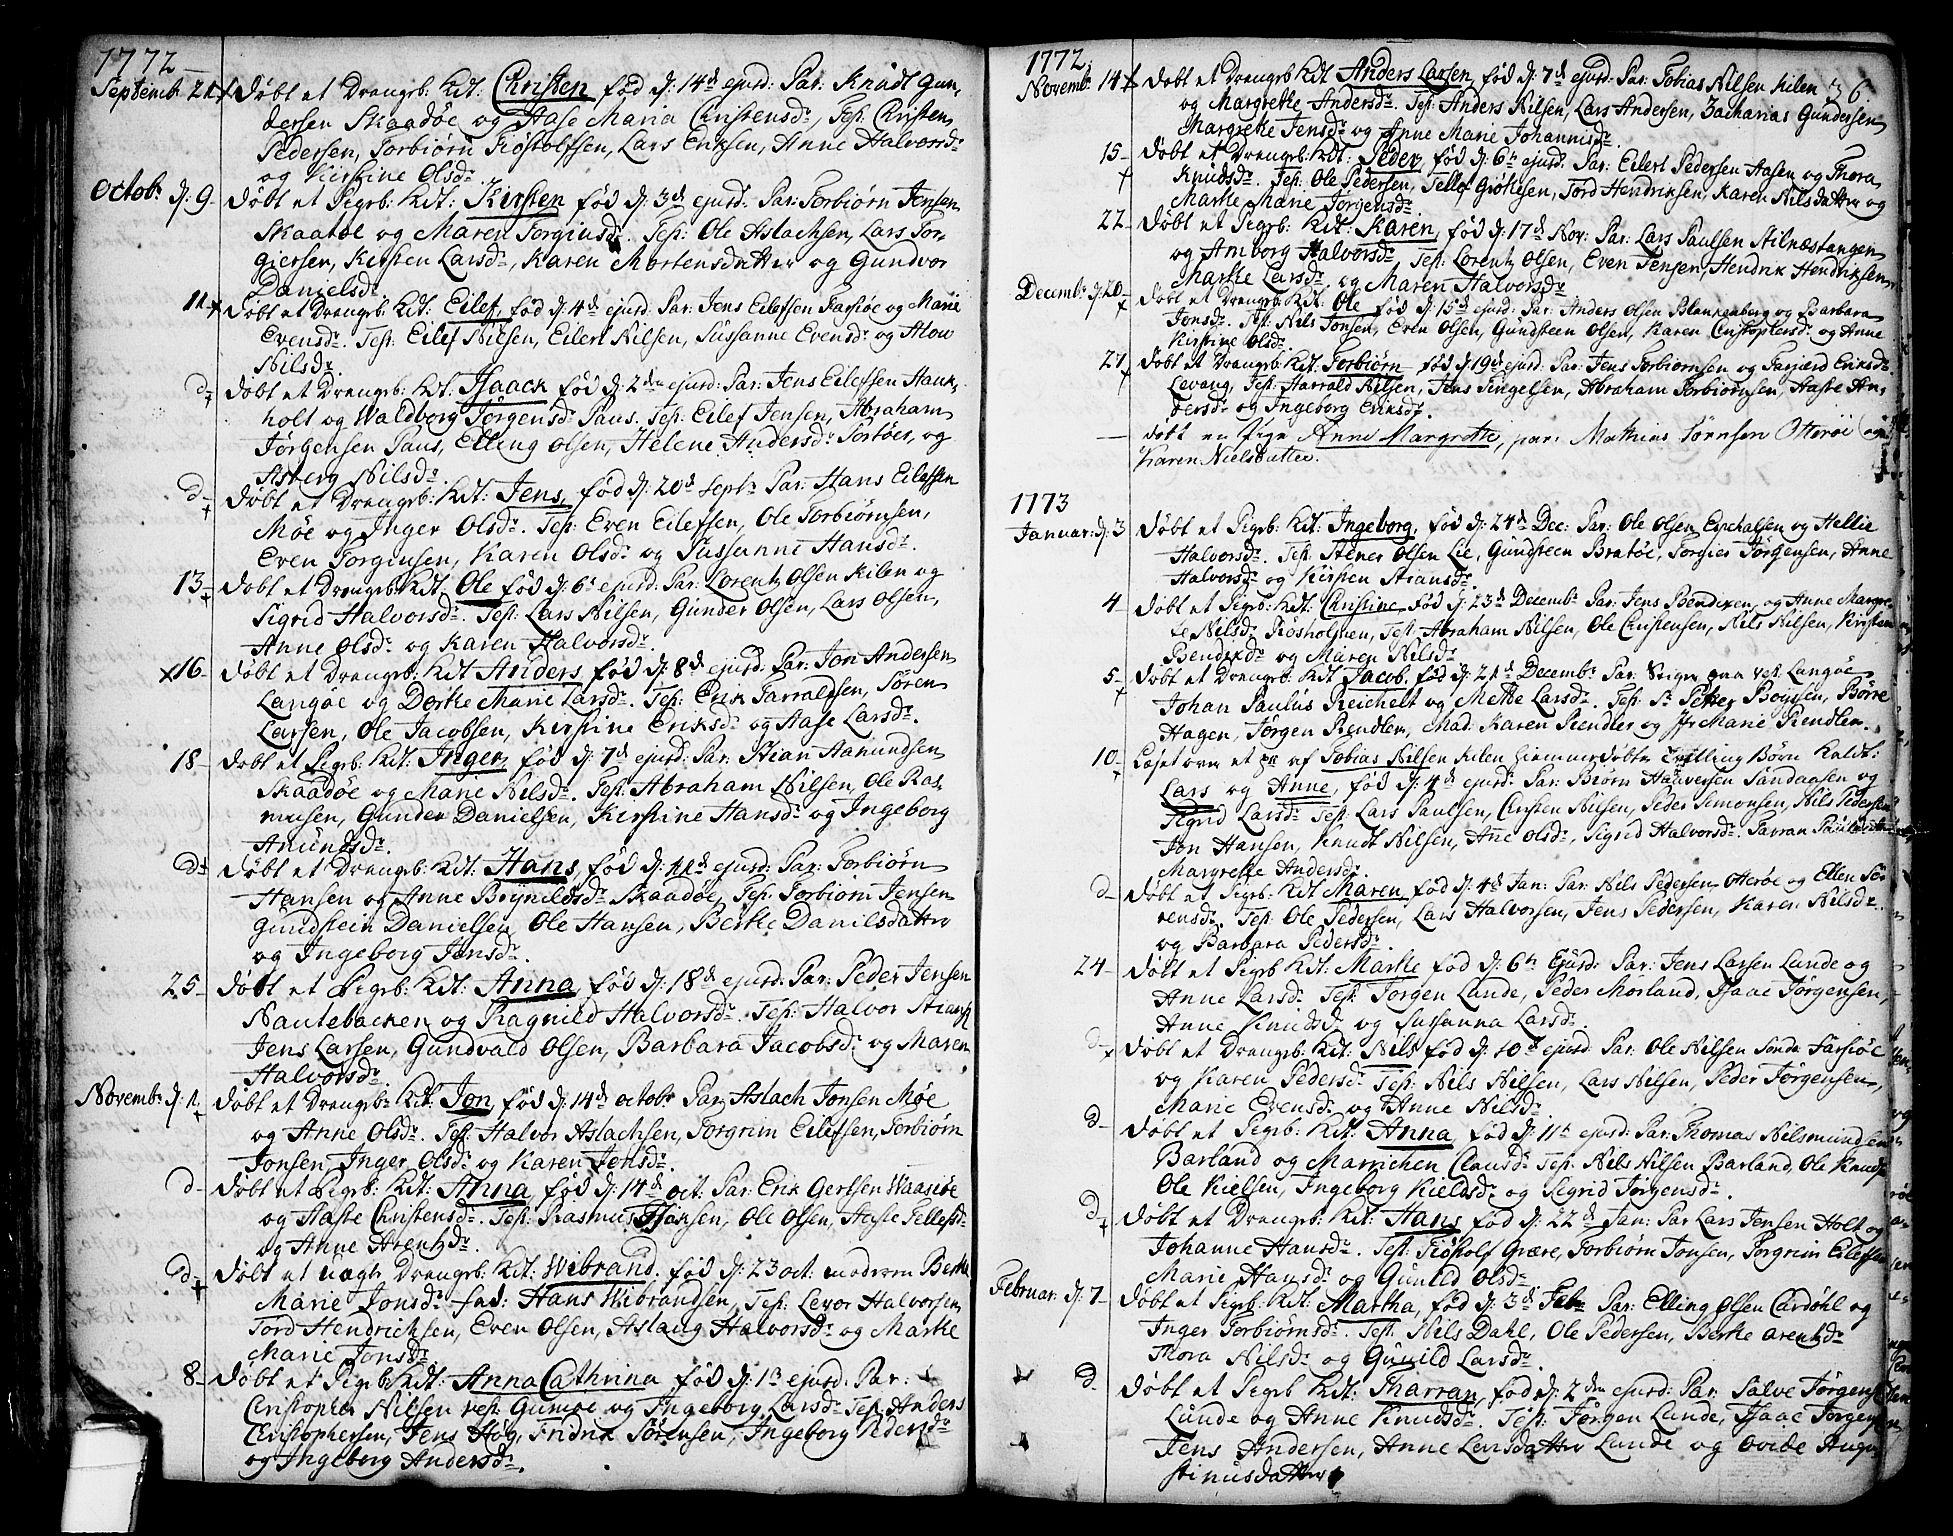 1772
Septemb: 21 Døbt et Drengeb: kdt: Christen fød d: 14d ejusd: Par: Knudt Gun-
dersen Skaadøe og Aase Maria Christensdr, Tes: Christen
Pedersen, Torbiørn Röstolfsen, Lars Eriksen, Anne Halvorsdr
og Kirstine Olsdr.
Octobr d: 9 Døbt et Pigeb: kdt: Kirsten fød d: 3d ejusd: Par: Torbiørn Jensen
Skaatøe og Maren Torginsdr. Tes: Ole Aslachsen, Lars Tor-
giersen, Kirsten Larsdr, Karen Mortensdatter og Gundvor
Danielsdr
11 Døbt et Drengeb: kdt: Eilef, fød d: 4d ejusd: Par: Jens Eilefsen Farsiøe og Marie
Evensdr. Tes: Eilef Nilsen, Eilert Nilsen, Sussanne Evensdr og Alow
Nilsdr.
d Døbt et Drengeb: kdt: Isaack fød d: 2den ejusd: Par: Jens Eilefsen Hauk-
holt og Waldborg Jørgensdr Paus. Tes: Eilef Jensen, Abraham
Jørgensen Paus, Elling Olsen, Helene Andersdr Portøer, og
Asberg Nilsdr.
d Døbt et Drengeb: kdt: Jens, fød d: 20d Septr Par: Hans Eilefsen
Møe og Inger Olsdr. Tes: Even Eilefsen, Ole Torbiørnsen,
Even Torginsen, Karen Olsdr og Sussanne Hansdr.
13 Døbt et Drengeb: kdt: Ole fød d: 6t ejusd: Par: Lorentz Olsen Kilen og
Sigrid Halvorsdr. Tes: Lars Nilsen, Gunder Olsen, Lars Olsen,
Anne Olsdr og Karen Halvorsdr.
x16 Døbt et Drengeb: kdt Anders fød d: 8d ejusd: Par: Jon Andersen
Langøe og Dorthe Marie Larsdr. Tes: Erik Tarralfsen, Søren
Larsen, Ole Jacobsen, Kirstine Eriksdr og Aase Larsdr.
18 Døbt et Pigeb: kdt: Inger, fød d: 7d ejusd: Par: Stian Aanundsen
Skaadøe og Marie Nilsdr. Tes: Abraham Nilsen, Ole Ras-
musen, Gunder Danielsen, Kirstine Hansdr og Ingeborg
Anundsdr.
d Døbt et Drengeb: kdt: Hans, fød d: 11d ejusd: Par: Torbiørn
Hansen og Anne Brynildsdr Skaadøe, Tes: Torbiørn Jensen
Gundstein Danielsen, Ole Hansen, Berthe Danilsdatter
og Ingeborg Jensdr.
25 Døbt et Pigeb: kdt: Anna, fød d: 18d ejusd: Par: Peder Jensen
Nautebacken og Ragnild Halvorsdr. Tes: Halvor Stians:
Jens Larsen, Gundvald Olsen, Barbara Jacobsdr og Maren
Halvorsdr.
Novembr d: 1 Døbt et Drengeb: kdt: Jon, fød d: 14d octobr Par: Aslach Jonsen Møe
og Anne Olsdr. Tes: Halvor Aslachsen, Torgrim Eilefsen, Torbiørn
Jonsen, Inger Olsdr og Karen Jensdr.
d Døbt et Pigeb: kdt: Anna, fød d: 14d oct. Par: Erik Gertsen Waasøe
og Aaste Christensdr. Tes: Rasmus Hansen, Ole Olsen, Aaste Tellefsdr
og Anne Arentzdr.
d Døbt et uægte Drengeb: kdt: Wibrand, fød d: 23 oct: moderen Berthe
Marie Jonsdr fad: Hans Wibrandsen, Tes: Levor Halvorsen,
Tord Hendrichsen, Even Olsen, Aslaug Halvorsdr og Marthe
Marie Jonsdr.
8 Døbt et Pigeb kdt: Anna Cathrina fød d: 1st ejusd: Par:
Christopher Nilsen vest Gumøe og Ingeborg Larsdr Tes: Anders
Christophersen, Jens Høg, Fridrik Sørensen, Ingeborg Pedersdr
og Ingeborg Andersdr.
1772,
Novemb: 14 Døbt et Drengeb kdt Anders Larsen, fød d: 7d ejusd: Par: Tobias Nilsen Kilen 36
og Margrethe Andersdr. Tes: Anders Nilsen, Lars Andersen, Zacharias Gundersen
Margrethe Jensdr og Anne Marie Johannisdr.
15 Døbt et Drengeb: kdt: Peder, fød d: 6t ejusd: Par: Eilert Pedersen Aasen og Thora
Knudsdr. Tes: Ole Pedersen, Tellef Grøthesen, Tord Hendriksen, Karen Nilsdatter og
Marthe Marie Jørgensdr
22 Døbt et Pigeb: kdt: Karen, fød d: 17d Nov: Par: Lars Paulsen Stilnæstangen
og Amborg Halvorsdr. Tes: Lorentz Olsen, Even Jensen, Hendrik Hendriksen,
Marthe Larsdr, og Maren Halvorsdr
Decembr d: 20 Døbt et Drengeb: kdt: Ole fød d: 15d ejusd: Par: Anders Olsen Blankenberg og Barbara
Jonsdr. Tes: Nils Jonsen, Even Olsen, Gundsteen Olsen, Karen Christophersdr og Anne
Kirstine Olsdr.
27 Døbt et Drengeb: kdt: Torbiørn fød d: 19d ejusd: Par: Jens Torbiørnsen og Targierd Eriksdr
Levang, Tes: Harrald Nilsen, Jens Engelsen, Abraham Torbiørnsen, Aaste An-
dersdr og Ingeborg Eriksdr.
— døbt en Pige Anne Margrethe, par: Mathias Sørnsen Otterøi og
Karen Nielsdatter.
1773
Januar: d: 3 Døbt et Pigeb: kdt: Ingeborg, fød d: 24d Dec: Par: Ole Olsen, Enchalsen og Hellie
Halvorsdr. Tes: Stener Olsen Lie, Gundsteen Bratøe, Torgier Jørgensen, Anne
Halvorsdr og Kirsten Stiansdr
4 Døbt et Pigeb: kdt: Christine fød d: 23d Decembr Par: Jens Bendixen, og Anne Margre-
te Nilsdr Røsholmen, Tes: Abraham Nilsen, Ole Christensen, Nils Nilsen, Kirsten
Bendixdr og Maren Nilsdr
5 Døbt et Drengeb: kdt Jacob, fød d: 21d Decembr Par: Stiger paa vest Langøe
Johan Paulus Reichelt og Mette Larsdr. Tes: Sr Petter Boysen, Børre
Hagen, Jørgen Rendler, Mad: Karen Rendler og Jfr Marie Rendler.
10 Læset over et par af Tobias Nilsen Kilen hiemmedøbte Tvilling Børn kaldt:
Lars og Anne, fød d: 4d ejusd: Par: Biørn Halversen Sandaasen og
Sigrid Larsdr Tes: Lars Paulsen, Carsten Nilsen, Peder Simonsen, Nils Pedersen
Jon Hansen, Knudt Nilsen, Ane Olsdr, Sigrid Halvorsdr. Tarran Paulsdr
Margrethe Andersdr.
d Døbt et Pigeb: kdt Maren, fød d: 4d Jan: Par: Nils Pedersen Otterøe og Ellen Sø-
rensdr. Tes: Ole Pedersen, Lars Halvorsen, Jens Pedersen, Karen Nilsdr
og Barbara Pedersdr.
24 Døbt et Pigeb kdt: Marthe fød d: 6t Ejusd: Par: Jens Larsen Lunde og
Anne Larsdr Tes: Jørgen Lunde, Peder Mørland, Isaac Jørgensen,
Anne Knudsdr og Sussanna Larsdr.
d Døbt et Drengeb: kdt: Nils fød d: 10d ejusd: Par: Ole Nilsen Søndr Farsiøe
og Karen Pedersdr. Tes: Nils Nilsen, Lars Nilsen, Peder Jørgensen,
Marie Evensdr og Anne Nilsdr.
d Døbt et Pigeb: kdt: Anna, fød d: 11t ejusd: Par: Thomas Nilsmundsen
Barland og Marrichen Clausdr Tes: Nils Nilsen Barland, Ole Knuds:
Ole Kielsen, Ingeborg Kieldsdr og Sigrid Jørgensdr.
d Døbt et Drengeb: kdt: Hans fød d: 22d Jan: Par Lars Jensen Holt og
Johanne Hansdr. Tes: Røstolf Græve, Torbiørn Jonsen, Torgrim Eilefsen
Marie Hansdr og Gunild Olsdr
Februar: d: 7 Døbt et Pigeb: kdt: Martha, fød d: 3d Febr Par: Elling Olsen Cardøhl og
Inger Torbiørnsdr. Tes: Nils Dahl, Ole Pedersen, Berthe Arentzdr
Thora Nilsdr og Gunild Larsdr.
d Døbt et Pigeb kdt: Tharran, fød d: 2den ejusd: Par: Salve Jørgens:
Lunde og Anne Knudsdr. Tes: Jørgen Lunde, Isaac Jørgens:
Jens Andersen, Anne Larsdatter Lunde og Ovide Augu-
stinusdatter